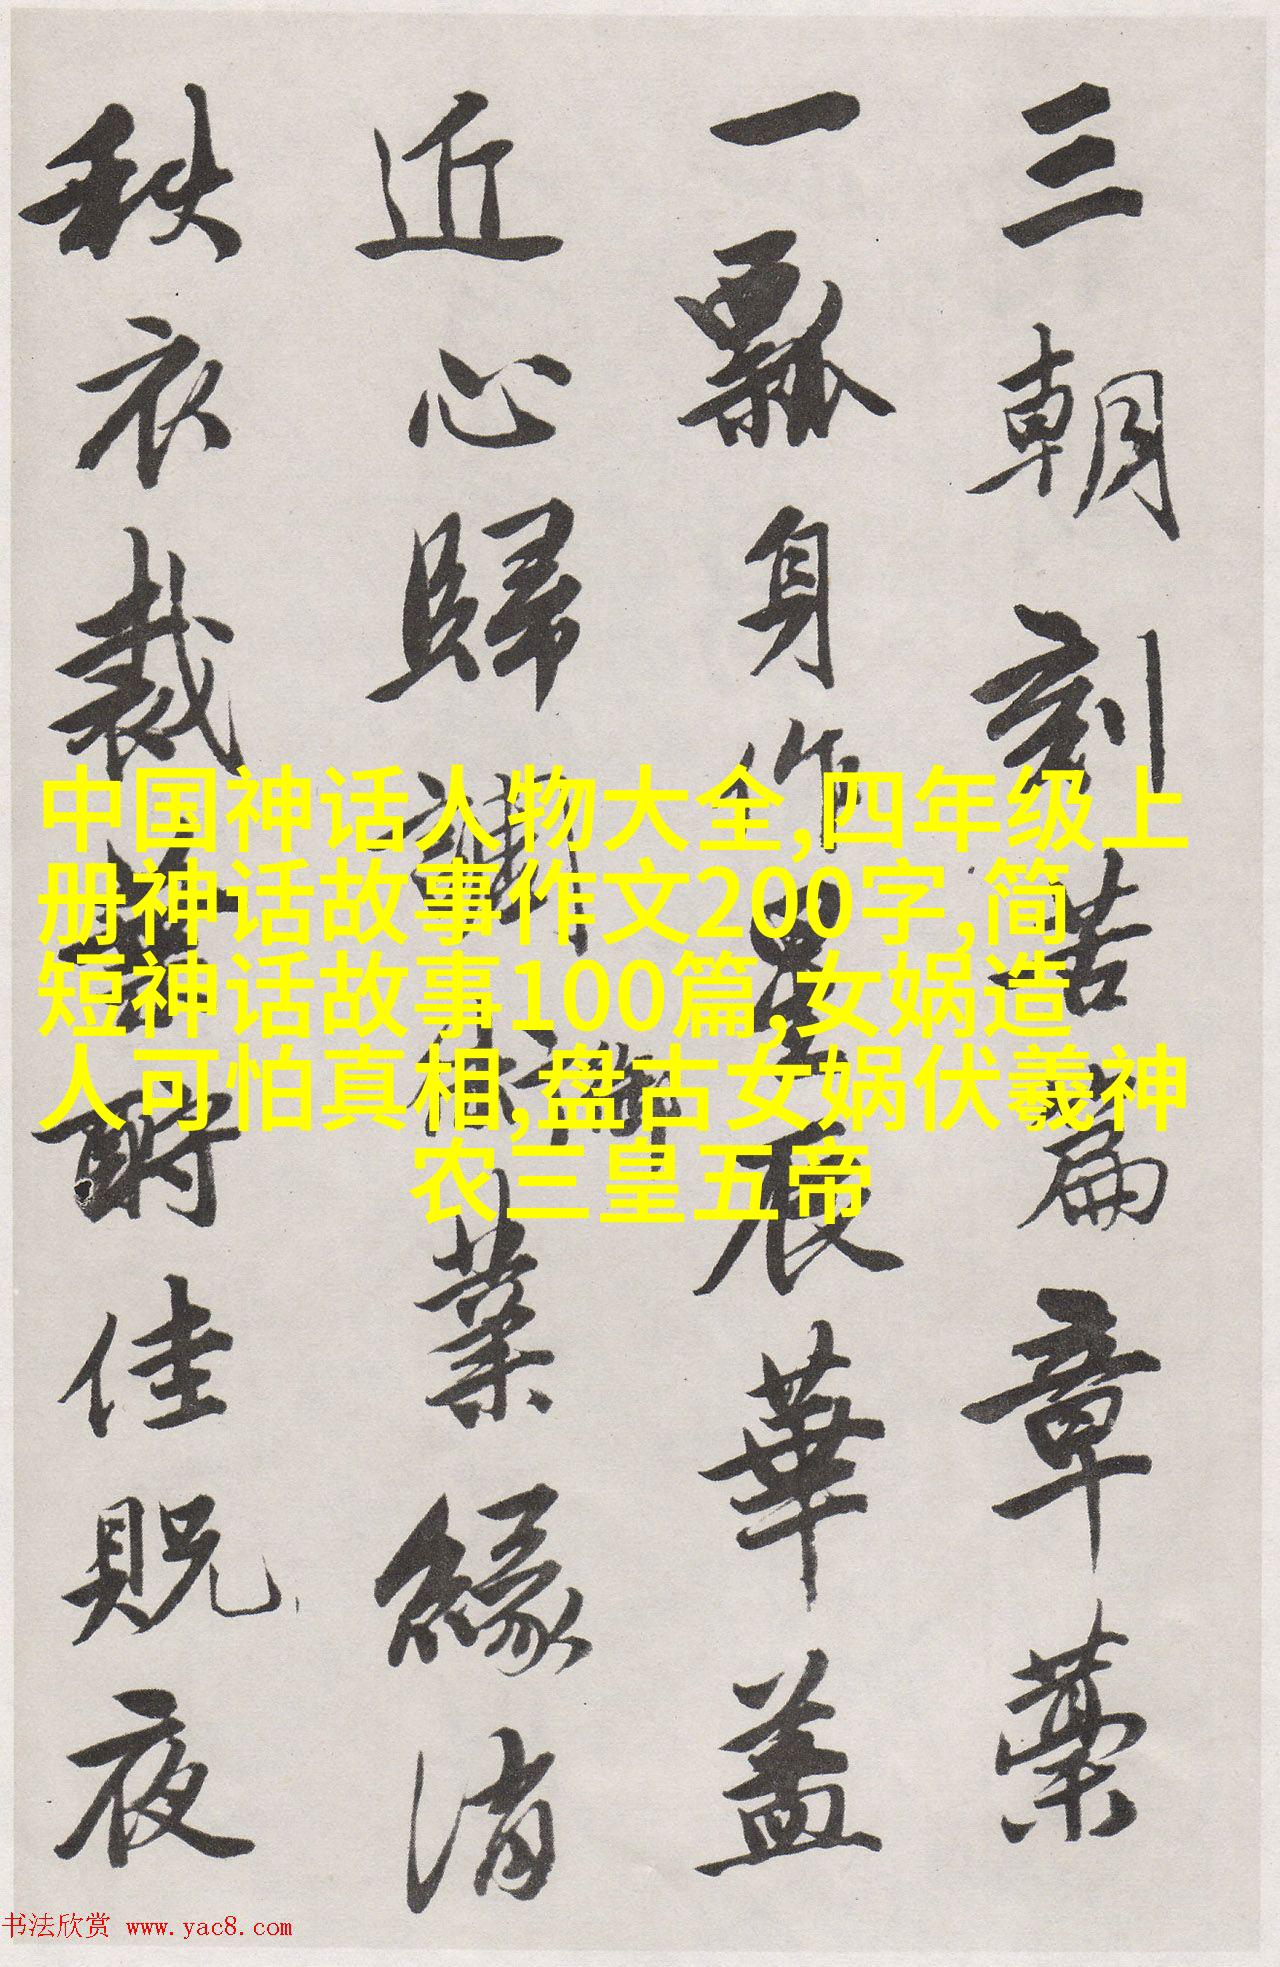 三朝刻苦篇章藁
一瓢身作星辰華盖
近心歸講業緣消
秩衣裁酬佳貺夜
中国神话人物大全,四年级上
册神话故事作文200字,简
短神话故事100篇,女娲造
人可怕真相,盘古女娲伏羲神
农三皇五帝
书法欣赏 www.yac8.com